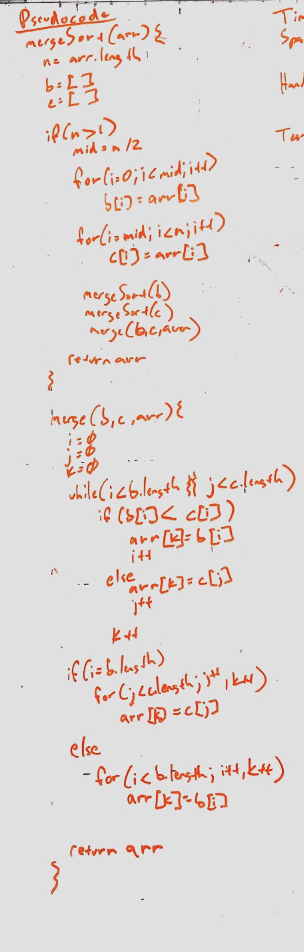 Pseudocode
mergeSort(arr){
n= arr.length
b=[ ]
c=[ ]
if(n>1)
mid = n/2
for(i=0;i<mid;i++)
b[i]=arr[i]
for(i=mid;i<n;i++)
c[i]=arr[i]
mergeSort(b)
mergeSort(c)
merge(b,c,arr)
return arr
}
merge(b,c,arr){
i=0
j=0
k=0
while(i<b.length && j<c.length)
if(b[i]<c[i])
arr[k]=b[i]
i++
else
arr[k]=c[j]
j++
k++
if(i=b.length)
for(j<c.length;j++,k++)
arr[k]=c[j]
else
for(i<b.length;i++,k++)
arr[k]=b[i]
return arr
}